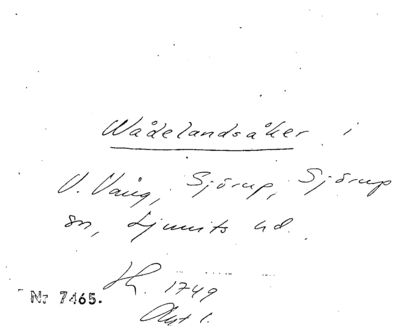 Wådelandsåker i
V. Vång, Sjörup, Sjörup
sn, Ljunits hd.
1749
Akt 1.
Nr 7465.